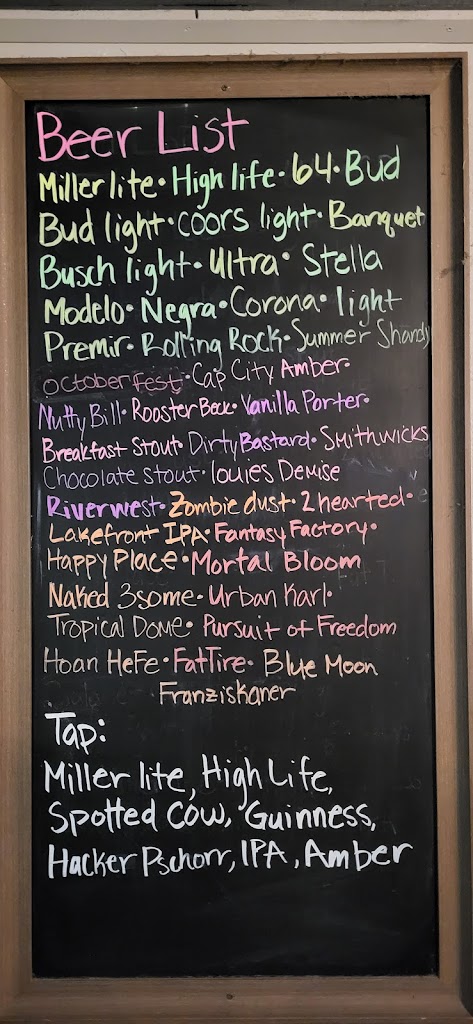 Beer List
Miller lite• High life• 64• Bud
Bud light• coors light• Banquet
Busch light• Ultra• Stella
Modelo• Negra• Corona• light
Premir• Rolling Rock• Summer Shandy
Octoberfest•Cap City Amber•
Nutty Bill• Rooster Beck• Vanilla Porter•
Breakfast Stout• Dirty Bastard• Smithwicks
Chocolate stout• louies Demise
Riverwest• Zombie dust• 2 hearted•
Lakefront IPA• Fantasy Factory•
Happy Place• Mortal Bloom
Naked 3some• Urban Karl•
Tropical Dome• Pursuit of Freedom
Hoan Hefe• Fat Tire• Blue Moon
Franziskaner
Tap:
Miller lite, High Life,
Spotted Cow, Guinness,
Hacker Pschorr, IPA, Amber